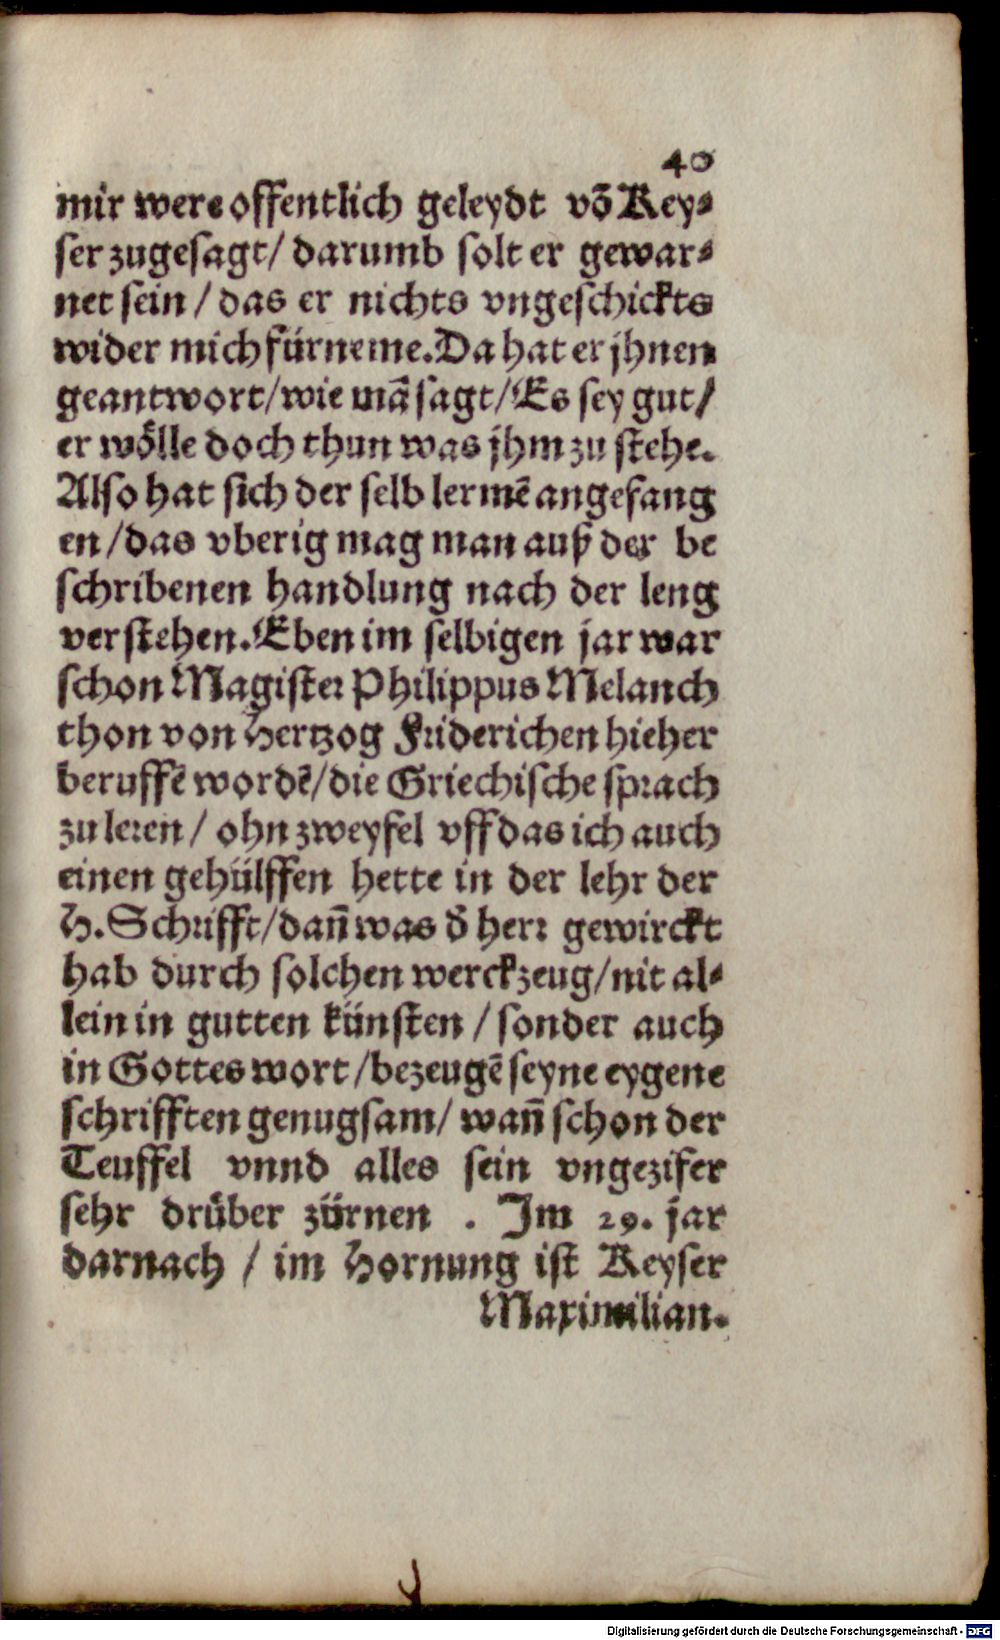 40
mir were offentlich geleydt võ Key⸗
ser zugesagt/ darumb solt er gewar⸗
net sein / das er nichts vngeschickts
wider mich fürneme. Da hat er jhnen
geantwort/ wie mã sagt/ Es sey gut/
er wölle doch thun was jhm zu stehe.
Also hat sich der selb lermẽ angefang
en / das vberig mag man auß der be
schribenen handlung nach der leng
verstehen. Eben im selbigen jar war
schon Magister Philippus Melanch
thon von Hertzog Friderichen hieher
beruffẽ wordẽ/ die Griechische sprach
zu leren / ohn zweyfel vff das ich auch
einen gehülffen hette in der lehr der
H. Schrifft/ dañ was d̃ herr gewirckt
hab durch solchen werckzeug/ nit al⸗
lein in gutten künsten / sonder auch
in Gottes wort / bezeugẽ seyne eygene
schrifften genugsam/ wañ schon der
Teuffel vnnd alles sein vngezifer
sehr drüber zürnen . Im 29. jar
darnach / im Hornung ist Keyser
Maximilian.
Digitalisierung gefördert durch die Deutsche Forschungsgemeinschaft - DFG